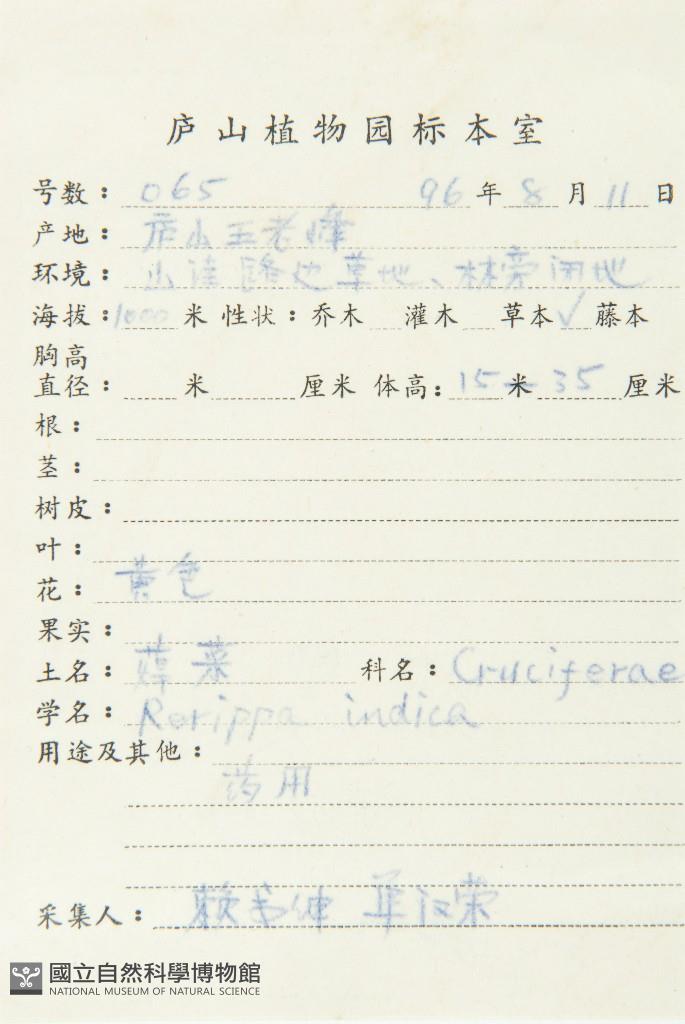 庐山植物园标本室
号数: 065 96年8月11日
产地: 庐山五老峰
环境: 山洼路边草地、林旁闭地
海拔: 1000 米 性状: 乔木 灌木 草本✓ 藤本
胸高
直径: 米 厘米 体高: 15 米— 35 厘米
根:
茎:
树皮:
叶:
花: 黄色
果实:
土名: 蔊菜 科名: Cruciferae
学名: Rorippa indica
用途及其他:
药用
采集人: 赖书绅 单汉荣
國立自然科學博物館
NATIONAL MUSEUM OF NATURAL SCIENCE